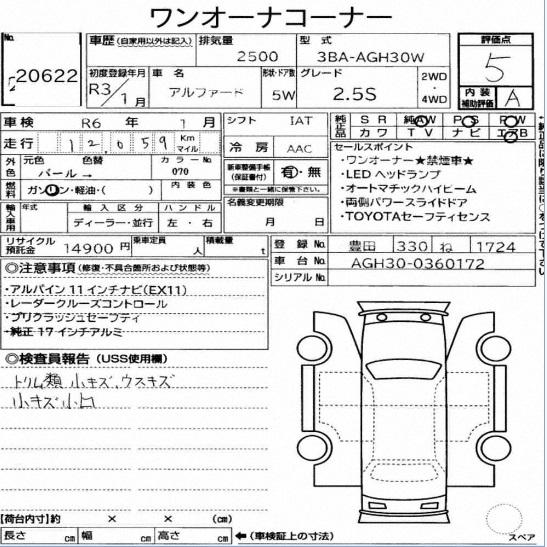 ワンオーナーコーナー
No. 20622
車歴 (自家用以外は記入) 排気量 2500 型式 3BA-AGH30W 評価点 5
初度登録年月 R3/1月 車名 アルファード 形状・ドア数 5W グレード 2.5S 2WD・4WD 内装補助評価 A
車検 R6年 1月 シフト IAT 純正品 SR 純AW PS PW
カワ TV ナビ エアB
走行 12,059 Km マイル 冷房 AAC
外色 元色 パール→ 色替 カラーNo 070
新車整備手帳(保証書付) 有・無
※書類と一緒に保管下さい。
燃料 ガソリン・軽油・( ) 内装色
名義変更期限 月 日
輸入車用 年式 輸入区分 ディーラー・並行 ハンドル 左・右
セールスポイント
・ワンオーナー★禁煙車★
・LEDヘッドランプ
・オートマチックハイビーム
・両側パワースライドドア
・TOYOTAセーフティセンス
リサイクル預託金 14900円 乗車定員 人 積載量 t
登録No. 豊田 330 ね 1724
車台No. AGH30-0360172
シリアルNo.
◎注意事項 (修復・不具合箇所および状態等)
・アルパイン11インチナビ(EX11)
・レーダークルーズコントロール
・プリクラッシュセーフティ
・純正17インチアルミ
◎検査員報告 (USS使用欄)
トリム類 小キズ、ウスキズ
小キズ 小凹
【荷台内寸】約 × × (cm)
長さ cm 幅 cm 高さ cm ←(車検証上の寸法)
スペア